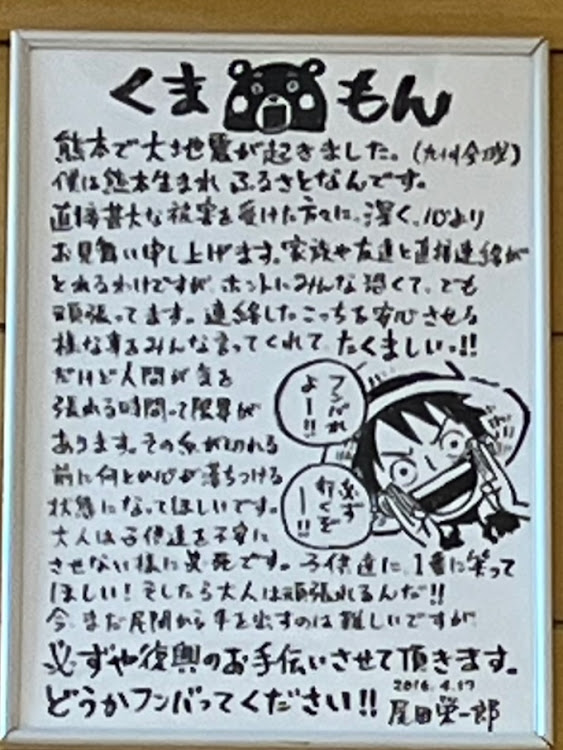 くまもん
熊本で大地震が起きました。(九州全域)
僕は熊本生まれ ふるさとなんです。
直接甚大な被害を受けた方々に、深く、心より
お見舞い申し上げます。家族や友達と直接連絡が
とれるわけですが、ホントにみんな恐くて、でも
頑張ってます。連絡したこっちを安心させる
様な事をみんな言ってくれて、たくましいっ!!
だけど人間が気を
張れる時間って限界が
あります。その糸が切れる
前に何とか心が落ちつける
状態になってほしいです。
大人は子供達を不安に
させない様に必死です。子供達に、1番に笑って
ほしい!そしたら大人は頑張れるんだ!!
今、まだ民間から手を出すのは難しいですが
必ずや復興のお手伝いさせて頂きます。
どうかフンバってください!!
2016.4.17
尾田栄一郎
フンバれ
よー!!
必ず
行くぞ
ー!!